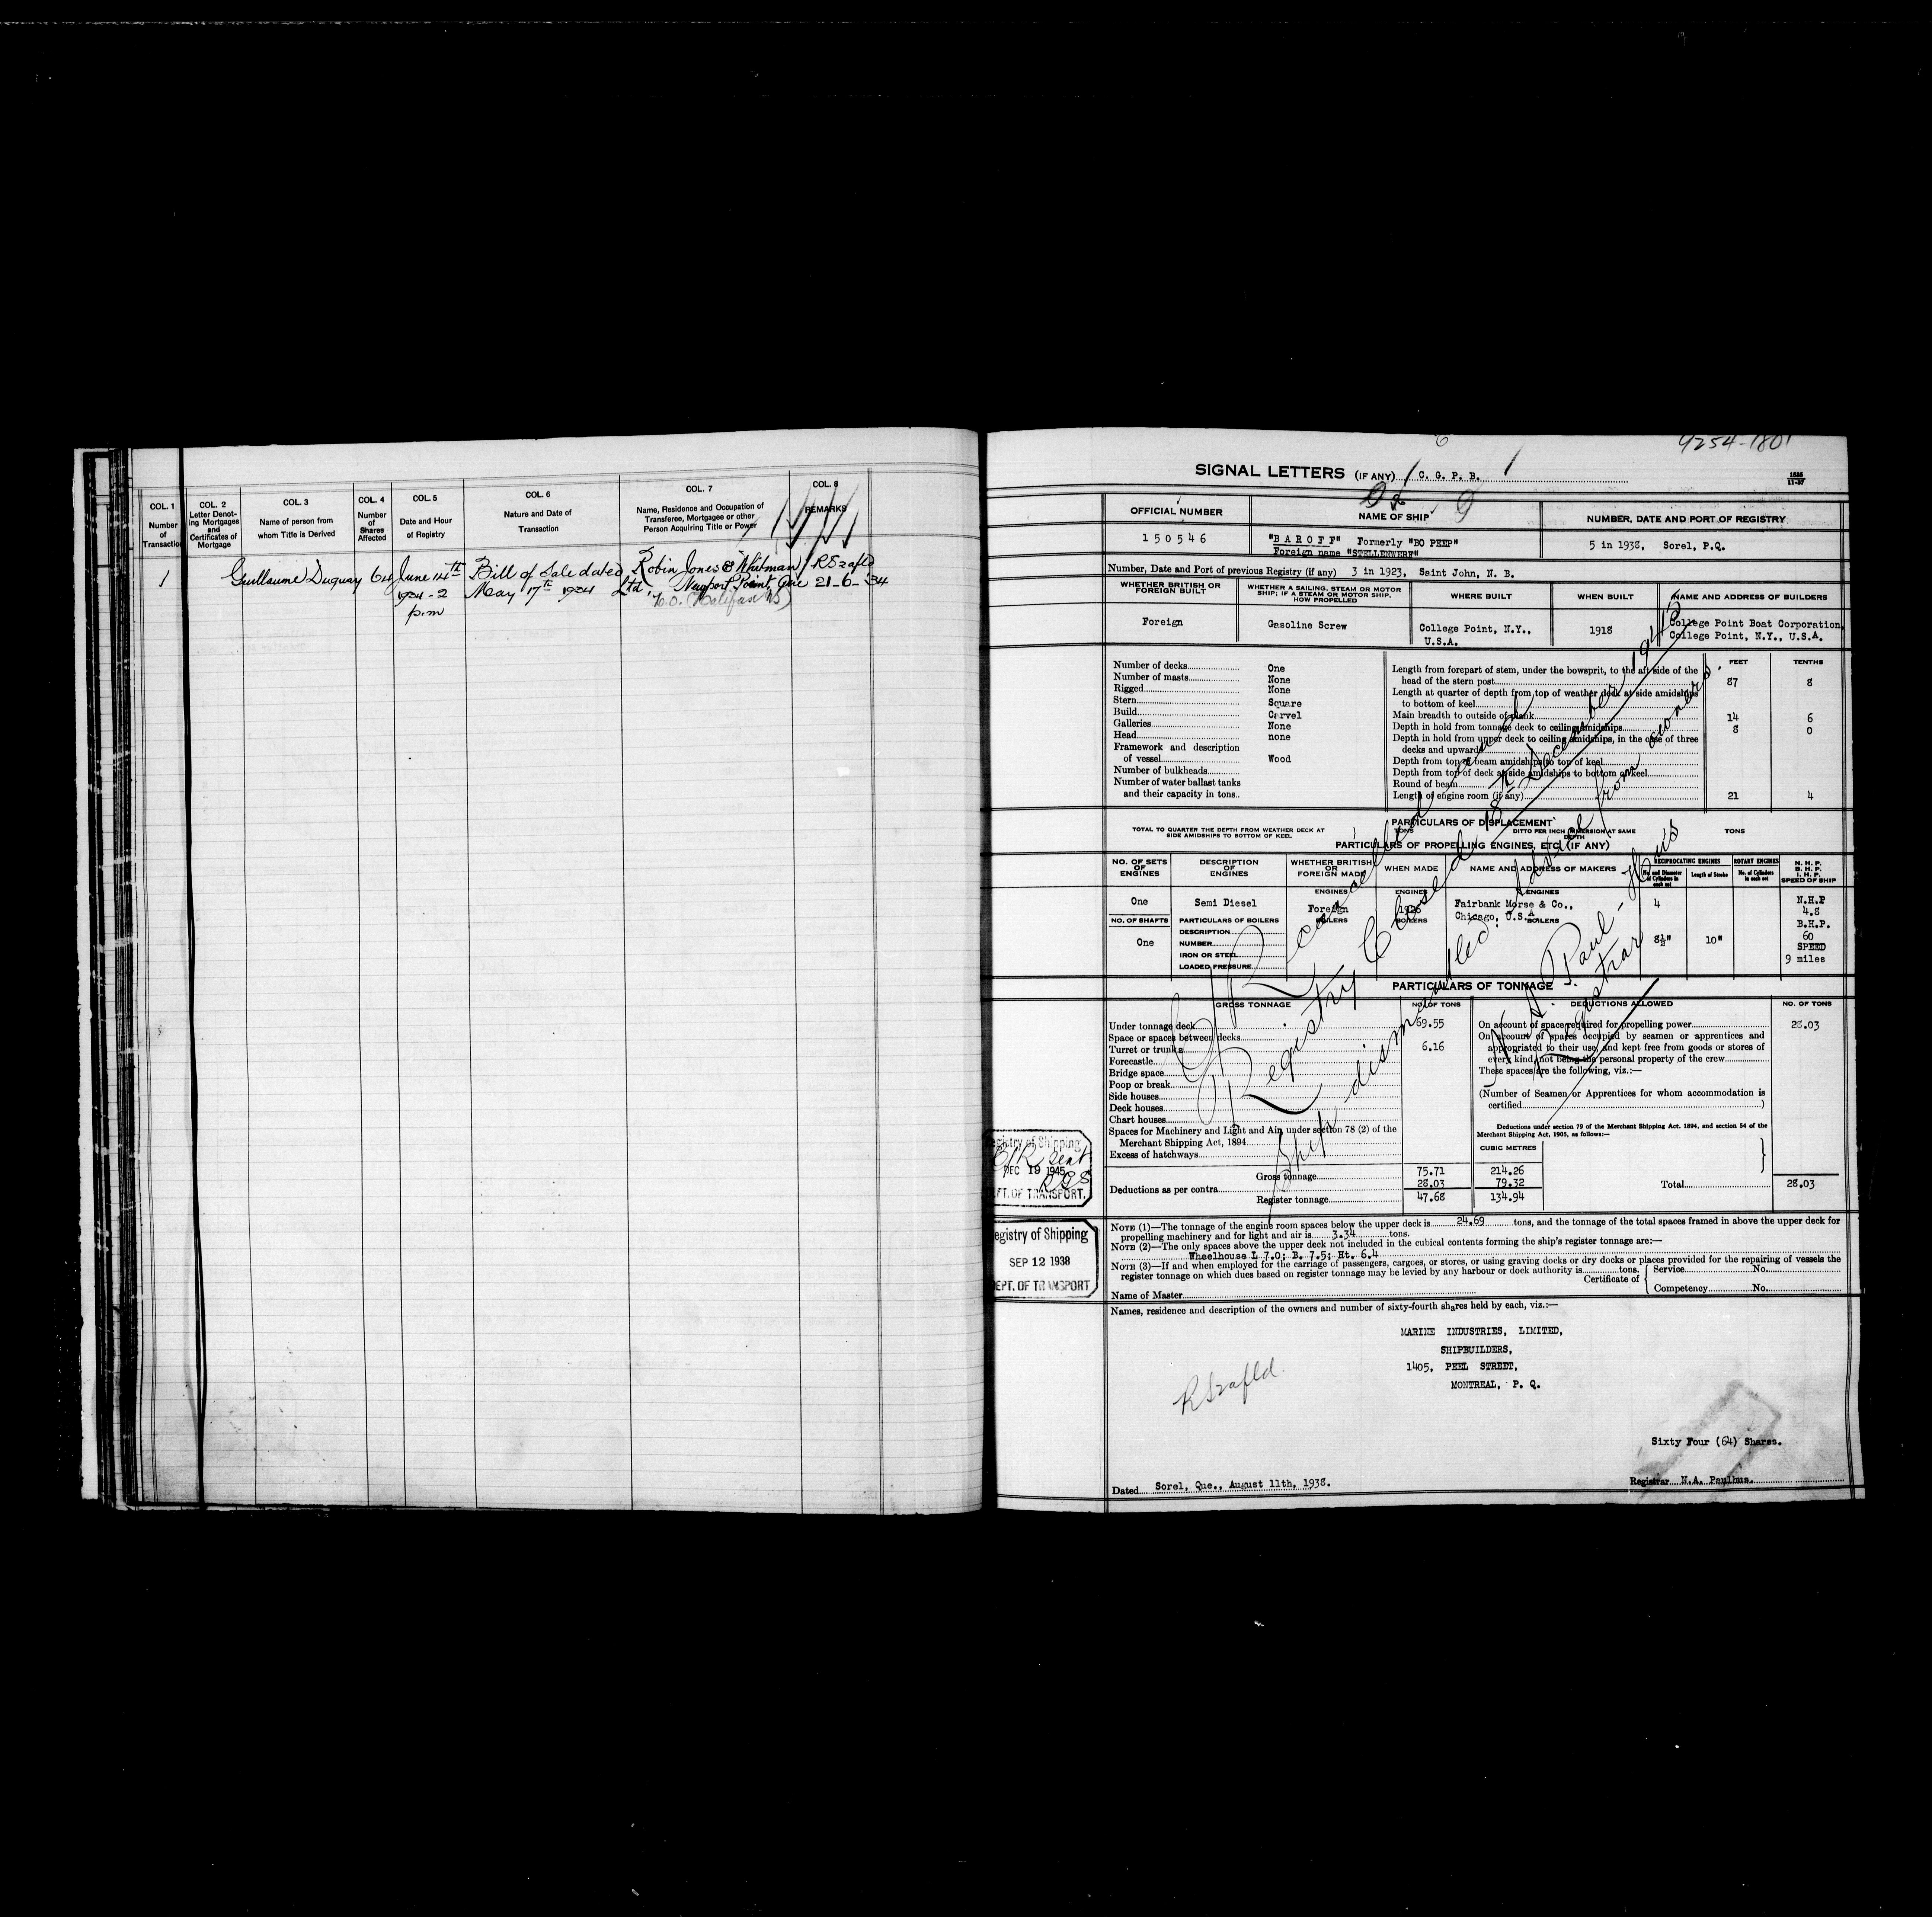 COL. 1
Number
of
Transaction
COL. 2
Letter Denot-
ing Mortgages
and
Certificates of
Mortgage
COL. 3
Name of person from
whom Title is Derived
COL. 4
Number
of
Shares
Affected
COL. 5
Date and Hour
of Registry
COL. 6
Nature and Date of
Transaction
COL. 7
Name, Residence and Occupation of
Transferee, Mortgagee or other
Person Acquiring Title or Power
COL. 8
REMARKS
1 Guillaume Duguay 64 June 14th Bill of Sale dated Robin Jones & Whitman
1934 - 2 May 17th 1934 Ltd, Newport Point, Que 21-6-34
p.m (Halifax NS)
9254-180
SIGNAL LETTERS (IF ANY) C. G. P. B.
1535
11-37
OFFICIAL NUMBER
NAME OF SHIP
NUMBER, DATE AND PORT OF REGISTRY
150546
"BAROFF" Formerly "BO PEEP"
Foreign name "STELLENWERF"
5 in 1938, Sorel, P.Q.
Number, Date and Port of previous Registry (if any) 3 in 1923, Saint John, N. B.
WHETHER BRITISH OR
FOREIGN BUILT
WHETHER A SAILING, STEAM OR MOTOR
SHIP; IF A STEAM OR MOTOR SHIP,
HOW PROPELLED
WHERE BUILT
WHEN BUILT
NAME AND ADDRESS OF BUILDERS
Foreign
Gasoline Screw
College Point, N.Y.,
U.S.A.
1918
College Point Boat Corporation,
College Point, N.Y., U.S.A.
Number of decks One
Number of masts None
Rigged None
Stern Square
Build Carvel
Galleries None
Head none
Framework and description
of vessel Wood
Number of bulkheads
Number of water ballast tanks
and their capacity in tons
FEET TENTHS
Length from forepart of stem, under the bowsprit, to the aft side of the
head of the stern post 87 8
Length at quarter of depth from top of weather deck at side amidships
to bottom of keel
Main breadth to outside of plank 14 6
Depth in hold from tonnage deck to ceiling amidships 8 0
Depth in hold from upper deck to ceiling amidships, in the case of three
decks and upwards
Depth from top of beam amidships to top of keel
Depth from top of deck at side amidships to bottom of keel
Round of beam
Length of engine room (if any) 21 4
PARTICULARS OF DISPLACEMENT
TOTAL TO QUARTER THE DEPTH FROM WEATHER DECK AT
SIDE AMIDSHIPS TO BOTTOM OF KEEL
TONS
DITTO PER INCH IMMERSION AT SAME
DEPTH
TONS
PARTICULARS OF PROPELLING ENGINES, ETC. (IF ANY)
NO. OF SETS
OF
ENGINES
DESCRIPTION
OF
ENGINES
WHETHER BRITISH
OR
FOREIGN MADE
WHEN MADE
NAME AND ADDRESS OF MAKERS
RECIPROCATING ENGINES
No. and Diameter
of Cylinders in
each set
Length of Stroke
ROTARY ENGINES
No. of Cylinders
in each set
N. H. P.
B. H. P.
I. H. P.
SPEED OF SHIP
ENGINES ENGINES ENGINES
One Semi Diesel Foreign 1926 Fairbank Morse & Co.,
Chicago, U.S.A.
BOILERS BOILERS BOILERS
4
8½" 10"
N.H.P
4.8
B.H.P.
60
SPEED
9 miles
NO. OF SHAFTS
One
PARTICULARS OF BOILERS
DESCRIPTION
NUMBER
IRON OR STEEL
LOADED PRESSURE
PARTICULARS OF TONNAGE
GROSS TONNAGE NO. OF TONS
DEDUCTIONS ALLOWED NO. OF TONS
Under tonnage deck 69.55
Space or spaces between decks
Turret or trunk 6.16
Forecastle
Bridge space
Poop or break
Side houses
Deck houses
Chart houses
Spaces for Machinery and Light and Air, under section 78 (2) of the
Merchant Shipping Act, 1894
Excess of hatchways
CUBIC METRES
Gross tonnage 75.71 214.26
Deductions as per contra 28.03 79.32
Register tonnage 47.68 134.94
On account of space required for propelling power 28.03
On account of spaces occupied by seamen or apprentices and
appropriated to their use, and kept free from goods or stores of
every kind, not being the personal property of the crew
These spaces are the following, viz.:—
(Number of Seamen or Apprentices for whom accommodation is
certified )
Deductions under section 79 of the Merchant Shipping Act. 1894, and section 54 of the
Merchant Shipping Act, 1906, as follows:—
Total 28.03
Registry Closed 18th December 1945
Ship dismantled. Advice from owners.
Registrar
Registry of Shipping
DEC 19 1945
DEPT. OF TRANSPORT.
Registry of Shipping
SEP 12 1938
DEPT. OF TRANSPORT
NOTE (1)—The tonnage of the engine room spaces below the upper deck is 24.69 tons, and the tonnage of the total spaces framed in above the upper deck for
propelling machinery and for light and air is 3.34 tons.
NOTE (2)—The only spaces above the upper deck not included in the cubical contents forming the ship's register tonnage are:—
Wheelhouse L 7.0; B. 7.5; Ht. 6.4
NOTE (3)—If and when employed for the carriage of passengers, cargoes, or stores, or using graving docks or dry docks or places provided for the repairing of vessels the
register tonnage on which dues based on register tonnage may be levied by any harbour or dock authority is tons.
Certificate of { Service No.
Competency No.
Name of Master
Names, residence and description of the owners and number of sixty-fourth shares held by each, viz.:—
MARINE INDUSTRIES, LIMITED,
SHIPBUILDERS,
1405, PEEL STREET,
MONTREAL, P. Q.
Sixty Four (64) Shares.
Dated Sorel, Que., August 11th, 1938.
Registrar N.A. Paulhus.